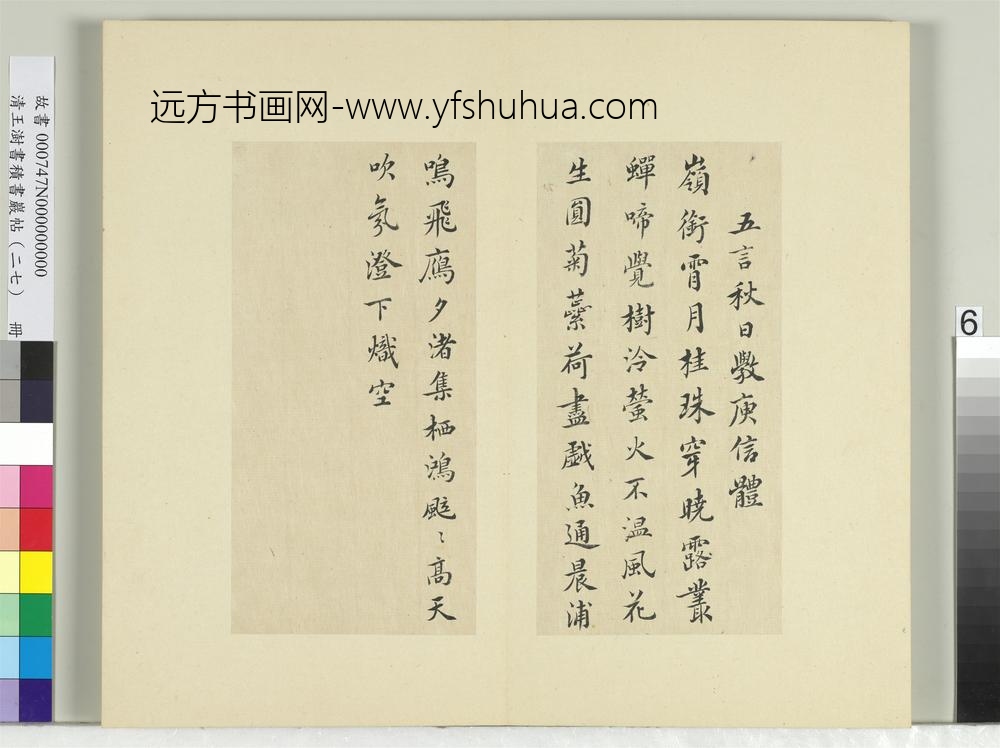 远方书画网-www.yfshuhua.com
故書 000747N000000000
清王澍書積書巖帖（二七） 冊
6
五言秋日斆庾信體
嶺銜霄月桂珠穿曉露叢
蟬啼覺樹冷螢火不温風花
生圓菊蘂荷盡戲魚通晨浦
鳴飛鴈夕渚集栖鴻颯々高天
吹氛澄下熾空